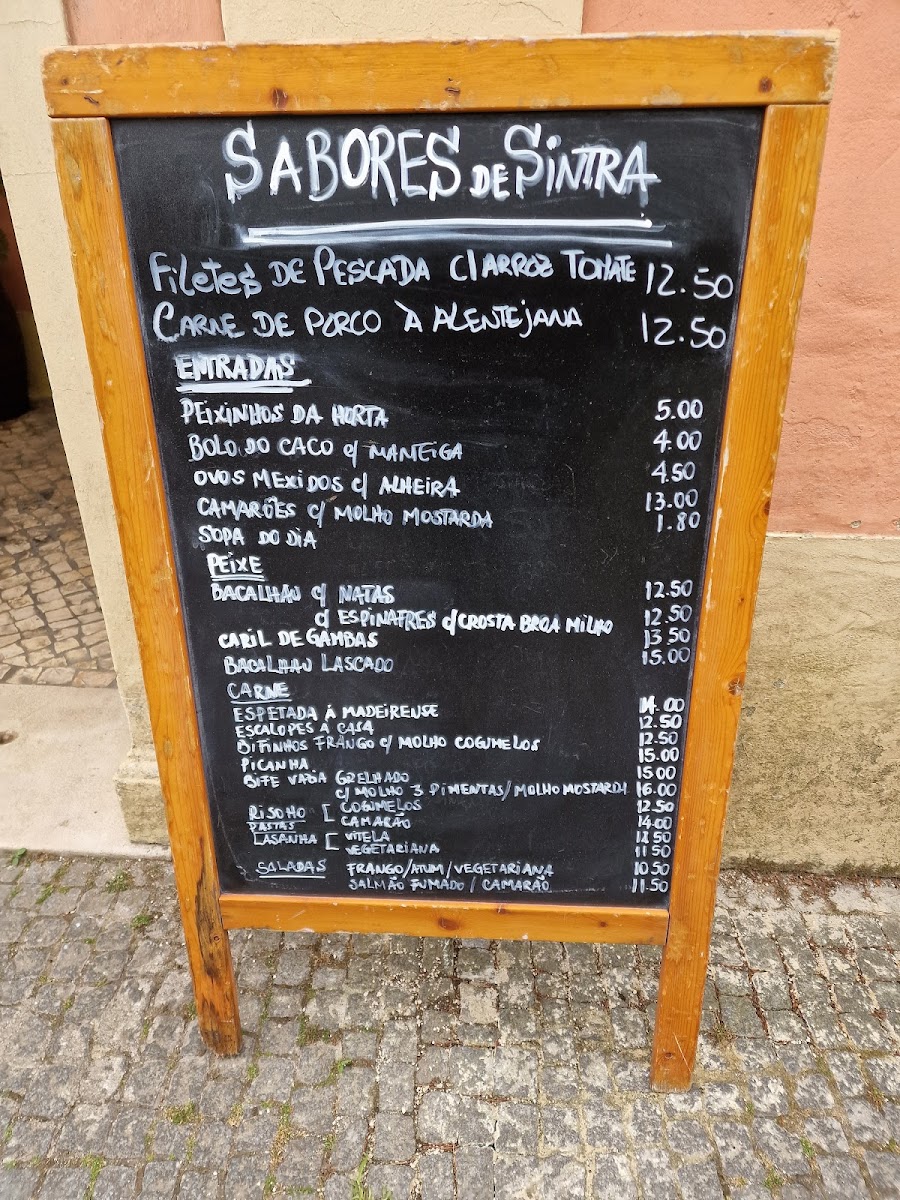 SABORES DE SINTRA
Filetes DE PESCADA C/ ARROZ TOMATE 12.50
CARNE DE PORCO À ALENTEJANA 12.50
ENTRADAS
PEIXINHOS DA HORTA 5.00
BOLO DO CACO c/ MANTEIGA 4.00
OVOS MEXIDOS c/ ALHEIRA 4.50
CAMARÕES c/ MOLHO MOSTARDA 13.00
SOPA DO DIA 1.80
PEIXE
BACALHAU c/ NATAS 12.50
c/ ESPINAFRES c/ CROSTA BROA MILHO 12.50
CARIL DE GAMBAS 13.50
BACALHAU LASCADO 15.00
CARNE
ESPETADA Á MADEIRENSE 14.00
ESCALOPES Á CASA 12.50
BIFINHOS FRANGO c/ MOLHO COGUMELOS 12.50
PICANHA 15.00
BIFE VAZIA GRELHADO 15.00
c/ MOLHO 3 PIMENTAS/ MOLHO MOSTARDA 16.00
RISOTTO [ COGUMELOS 12.50
CAMARÃO 14.00
PASTAS
LASANHA [ VITELA 12.50
VEGETARIANA 11.50
SALADAS FRANGO/ATUM/VEGETARIANA 10.50
SALMÃO FUMADO / CAMARÃO 11.50